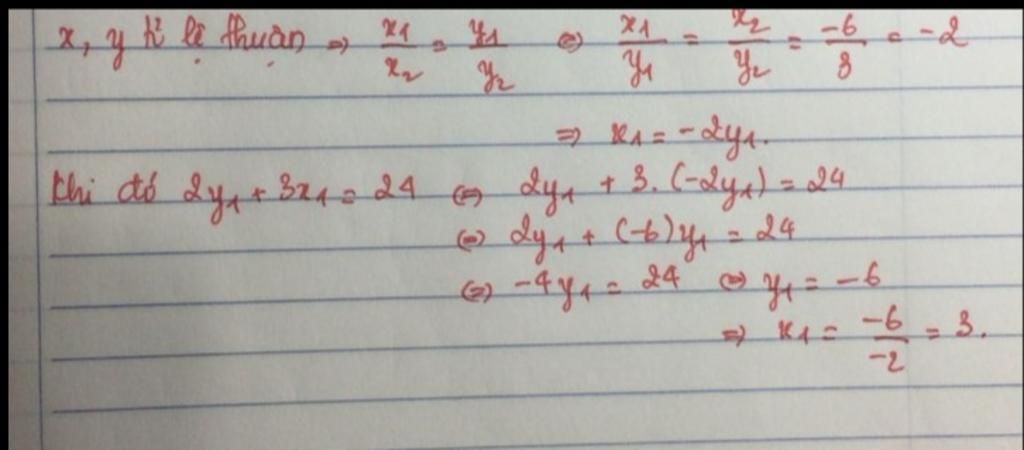 x, y tỉ lệ thuận ⇒ x₁/x₂ = y₁/y₂ ⇔ x₁/y₁ = x₂/y₂ = -6/3 = -2
⇒ x₁ = -2y₁.
Khi đó 2y₁ + 3x₁ = 24 ⇔ 2y₁ + 3.(-2y₁) = 24
⇔ 2y₁ + (-6)y₁ = 24
⇔ -4y₁ = 24 ⇔ y₁ = -6
⇒ x₁ = -6/-2 = 3.